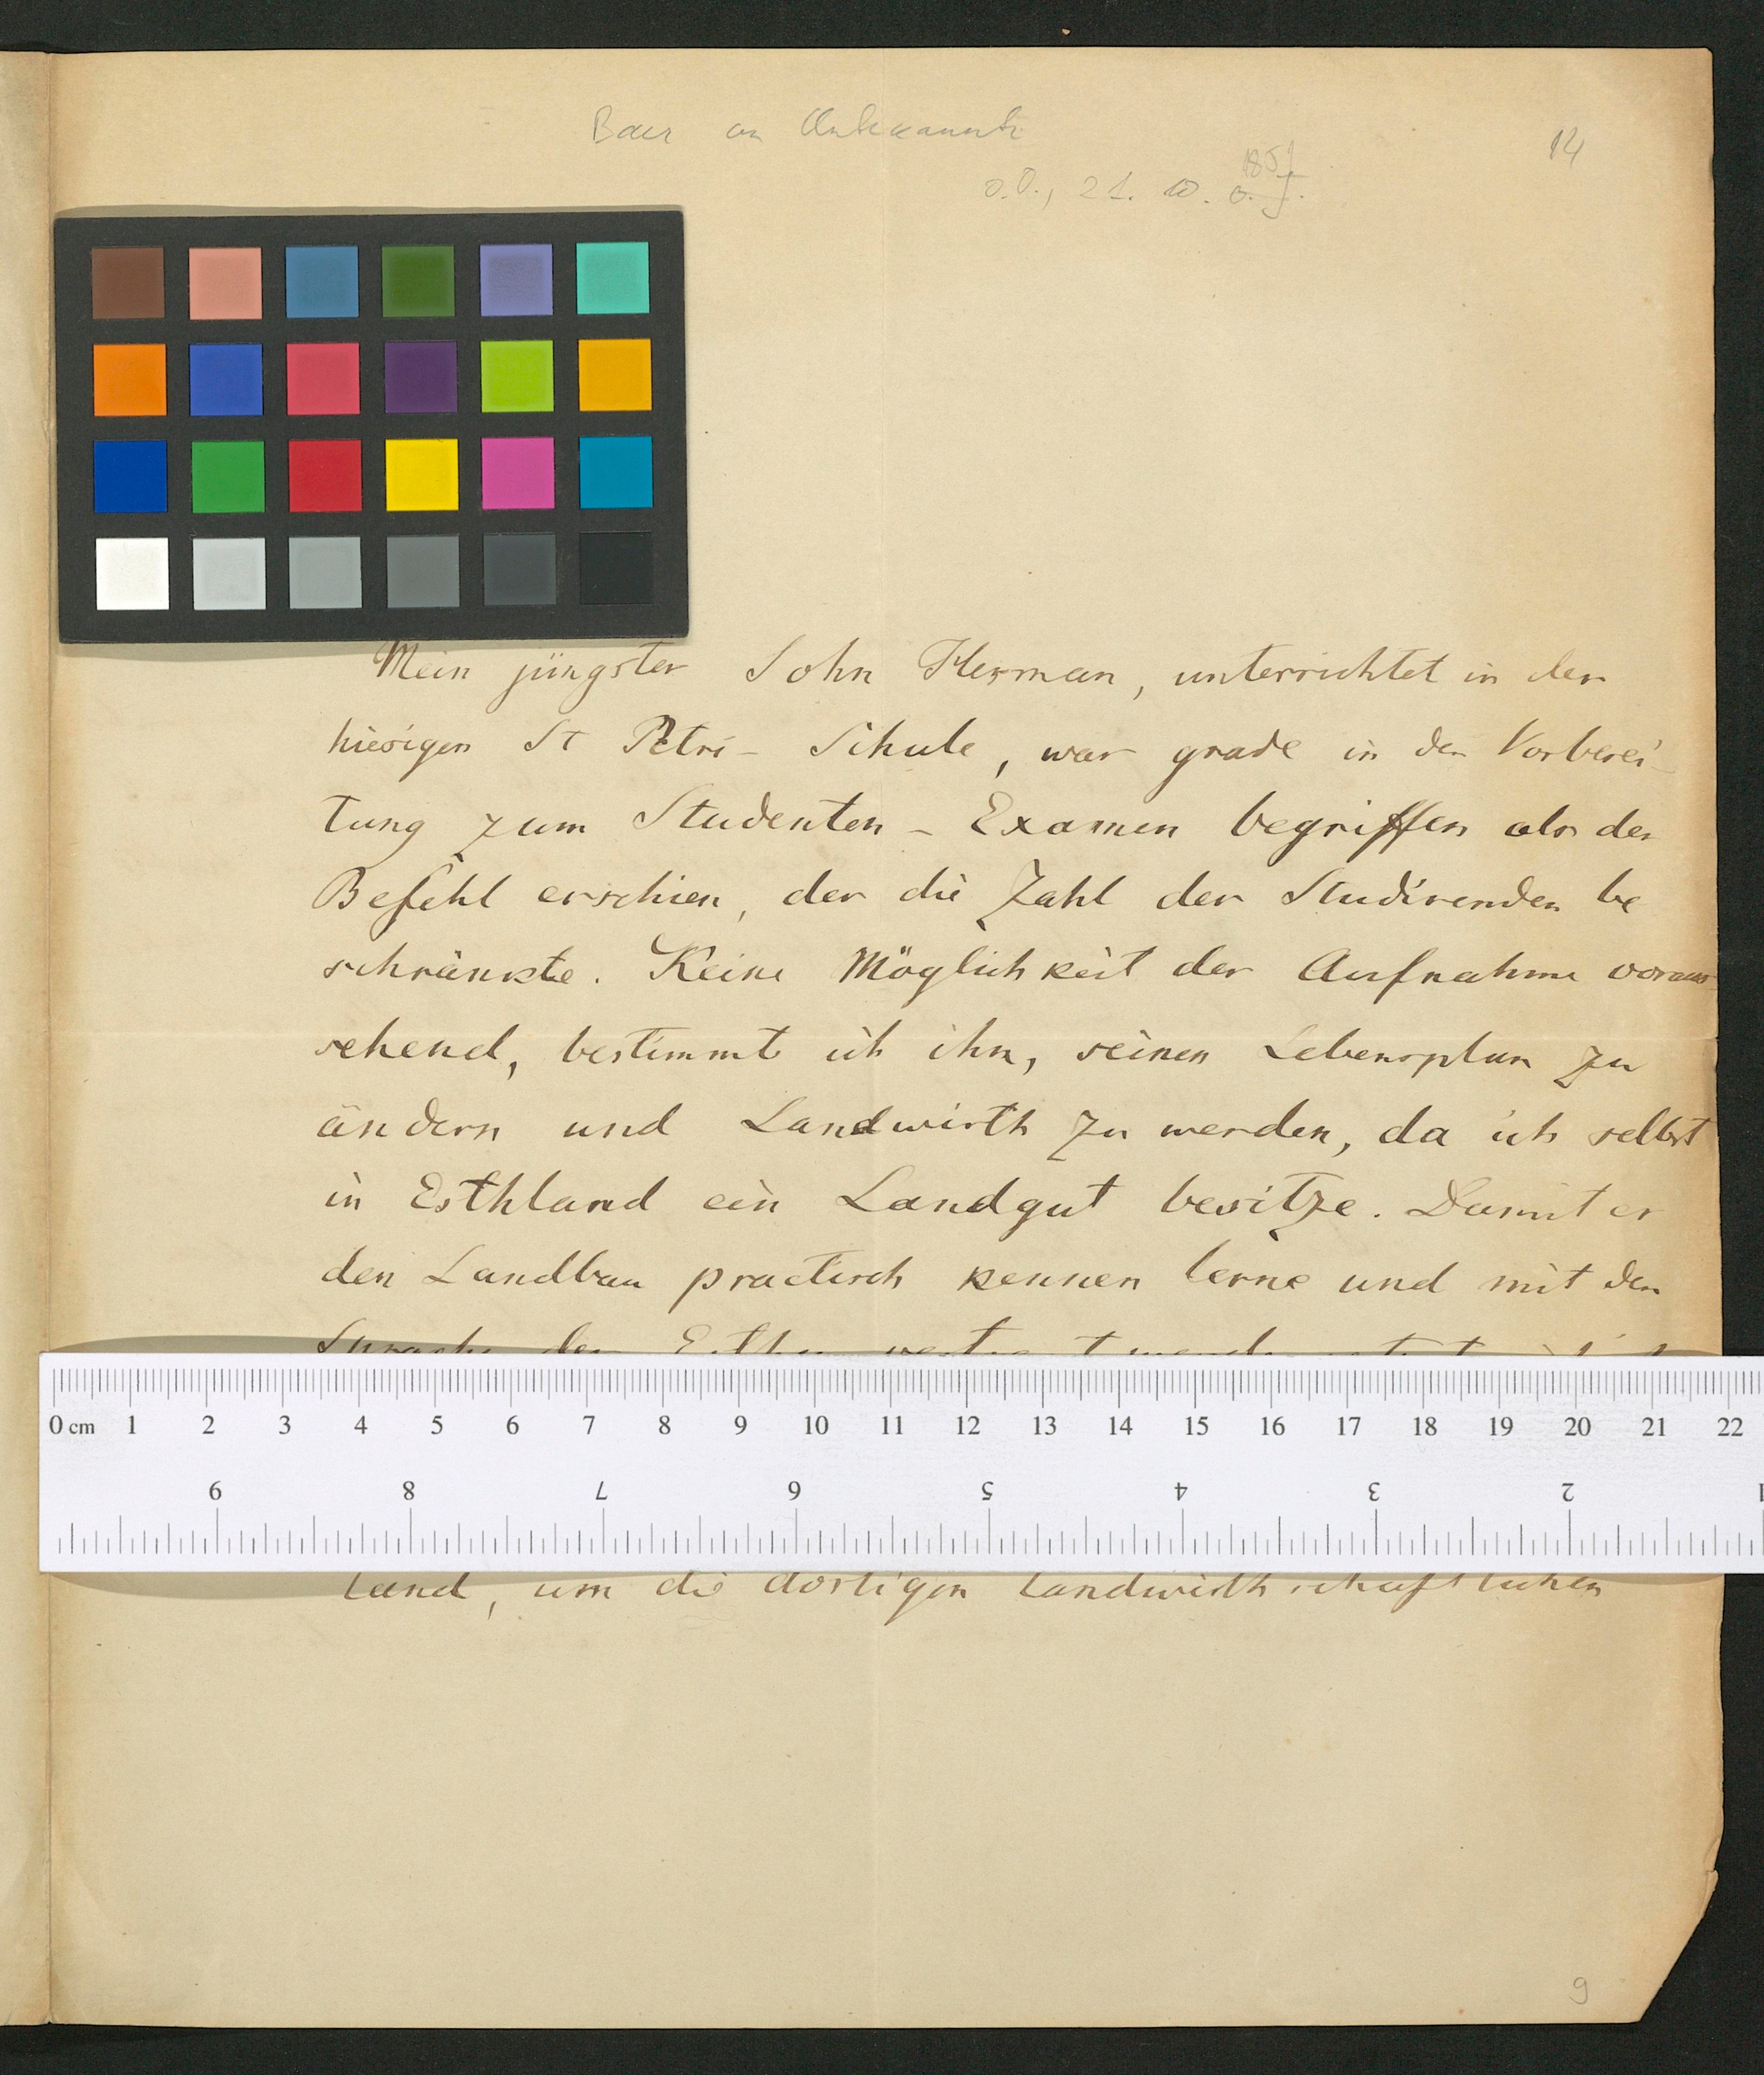 Baer an Unbekannt
14
1851
o.O., 21. 10. o. J.
Mein jüngster Sohn Herman, unterrichtet in der
hiesigen St Petri- Schule, war grade in der Vorberei-
tung zum Studenten-Examen begriffen als der
Befehl erschien, der die Zahl der Studirenden be
schränkte. Keine Möglichkeit der Aufnahme voraus-
sehend, bestimmt ich ihn, seinen Lebensplan zu
ändern und Landwirth zu werden, da ich selbst
in Esthland ein Landgut besitze. Damit er
den Landbau practisch kennen lerne und mit den
Sprache der Esthen vertraut werde
0 cm 1 2 3 4 5 6 7 8 9 10 11 12 13 14 15 16 17 18 19 20 21 22
9 8 7 6 5 4 3 2 1
land, um die dortigen landwirthschaftlichen
9